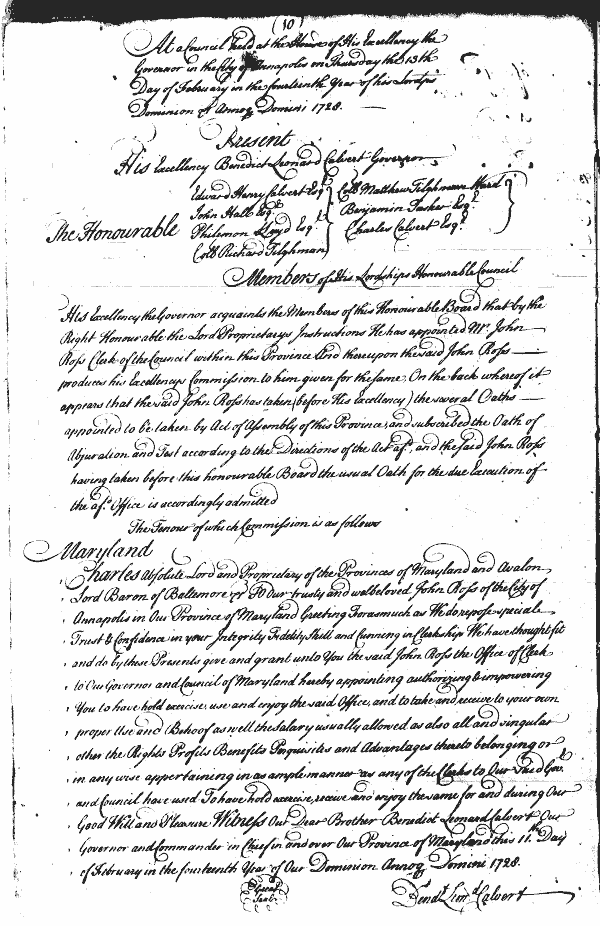 (10)
At a Council held at the House of His Excellency the
Governor in the City of Annapolis on Thursday the 13th
Day of February in the fourteenth Year of his Lordps
Dominion &c Annoq Domini 1728.
Present
His Excellency Benedict Leonard Calvert Governor
The Honourable
Edward Henry Calvert Esqr
John Hall Esqr
Philemon Lloyd Esqr
Collo Richard Tilghman
Collo Matthew Tilghman Ward
Benjamin Tasker Esqr
Charles Calvert Esqr
Members of His Lordships Honourable Council
His Excellency the Governor acquaints the Members of this Honourable Board that by the
Right Honourable the Lord Proprietarys Instructions He has appointed Mr. John
Ross Clerk of the Council within this Province And thereupon the said John Ross
produces his Excellencys Commission to him given for the same, On the back whereof it
appears that the said John Ross has taken (before His Excellency) the several Oaths
appointed to be taken by Act of Assembly of this Province, and subscribed the Oath of
Abjuration and Test according to the Directions of the Act afd. and the said John Ross
having taken before this honourable Board the usual Oath for the due Execution of
the afd. Office is accordingly admitted
The Tenour of which Commission is as follows
Maryland
Charles absolute Lord and Proprietary of the Provinces of Maryland and Avalon
Lord Baron of Baltemore &c To Our trusty and welbeloved John Ross of the City of
Annapolis in Our Province of Maryland Greeting Forasmuch as We do repose speciale
Trust & Confidence in your Integrity Fidelity Skill and Cunning in Clerkship We have thought fit
and do by these Presents give and grant unto You the said John Ross the Office of Clerk
to Our Governor and Council of Maryland hereby appointing authorizing & impowering
You to have hold exercise, use and enjoy the said Office, and to take and receive to your own
proper Use and Behoof as well the Salary usually allowed as also all and singular
other the Rights Profits Benefits Perquisites and Advantages thereto belonging or
in any wise appertaining in as ample manner as any of the Clerks to Our Said Govr.
and Council have used To have hold exercise, receive and enjoy the same for and during Our
Good Will and Pleasure Witness Our Dear Brother Benedict Leonard Calvert Our
Governor and Commander in Chief in and over Our Province of Maryland this 11th Day
of February in the fourteenth Year of Our Dominion Annoq Domini 1728.
Great
Seal
Bendt Leond Calvert